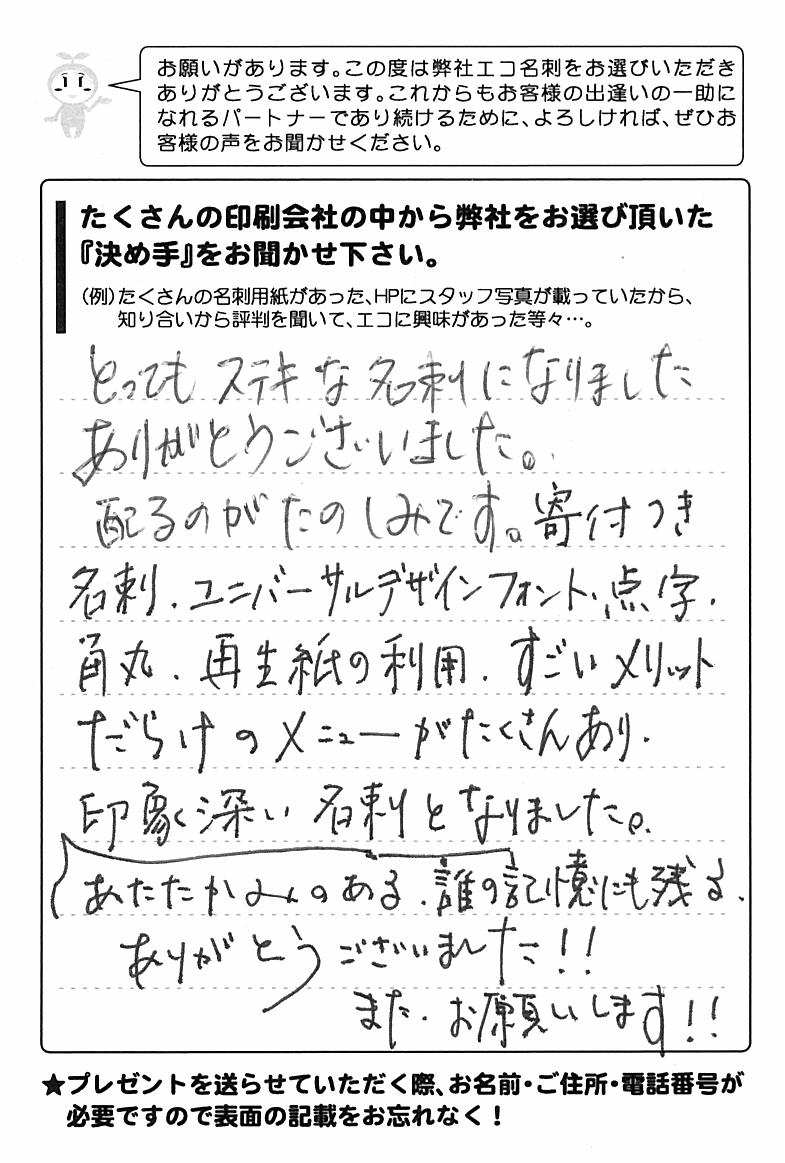 お願いがあります。この度は弊社エコ名刺をお選びいただき
ありがとうございます。これからもお客様の出逢いの一助に
なれるパートナーであり続けるために、よろしければ、ぜひお
客様の声をお聞かせください。
たくさんの印刷会社の中から弊社をお選び頂いた
『決め手』をお聞かせ下さい。
（例）たくさんの名刺用紙があった、HPにスタッフ写真が載っていたから、
知り合いから評判を聞いて、エコに興味があった等々…。
とってもステキな名刺になりました
ありがとうございました。
配るのがたのしみです。寄付つき
名刺、ユニバーサルデザインフォント、点字、
角丸、再生紙の利用、すごいメリット
だらけのメニューがたくさんあり、
印象深い名刺となりました。
あたたかみのある、誰の記憶にも残る、
ありがとうございました!!
また、お願いします!!
★プレゼントを送らせていただく際、お名前・ご住所・電話番号が
必要ですので表面の記載をお忘れなく！